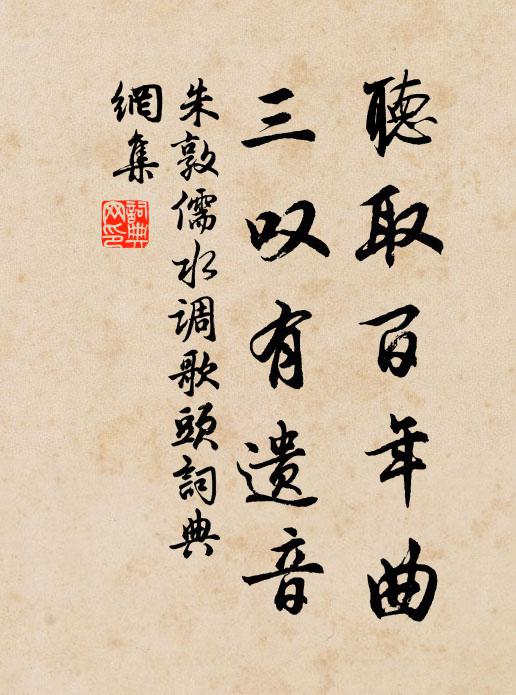 聽取百年曲
三叹有遺音
朱敦儒水调歌頭詞典
網集
詞典
网印